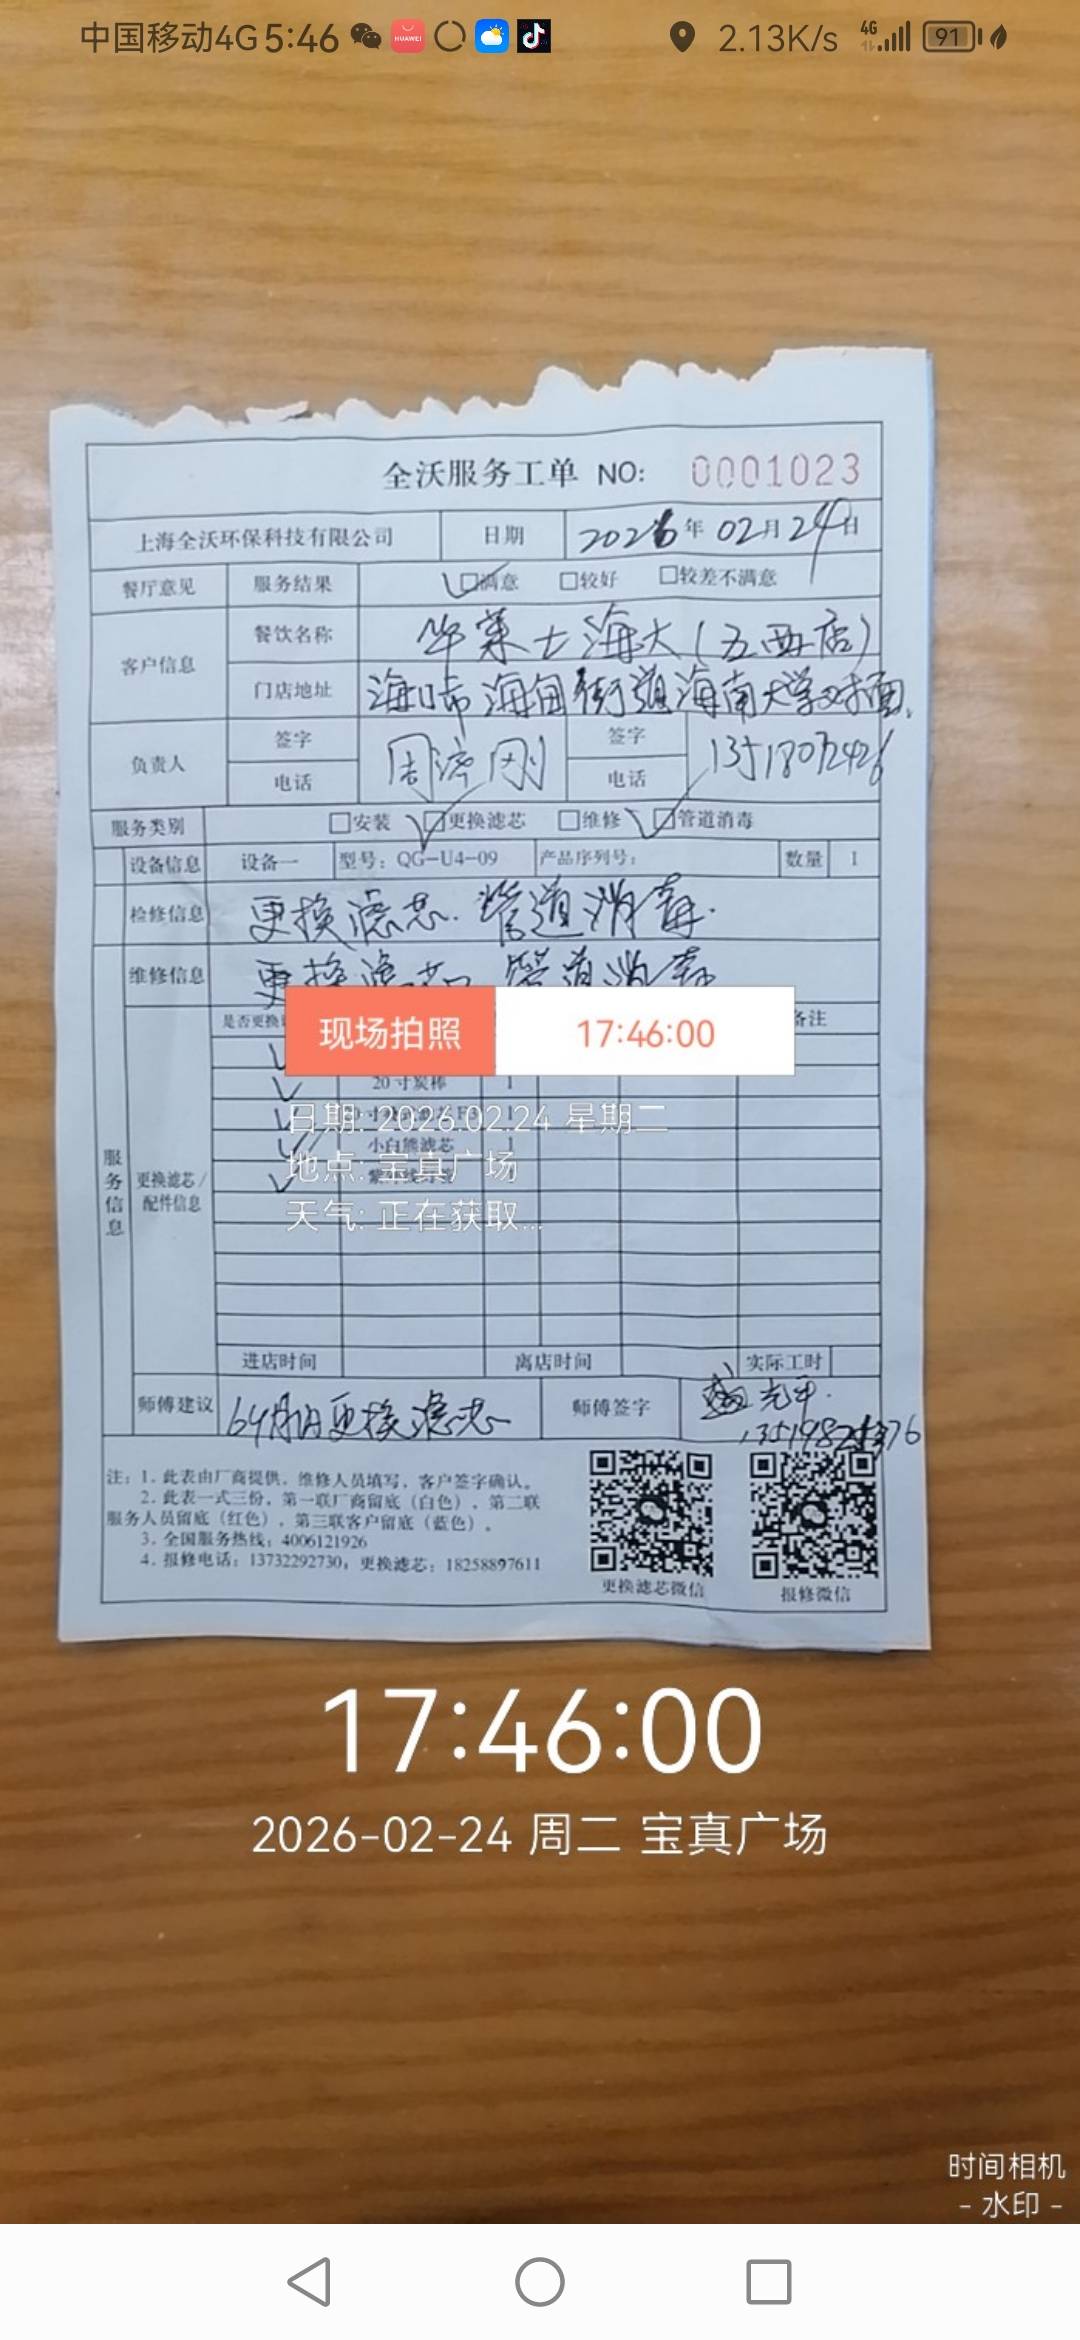 中国移动4G 5:46 2.13K/s 4G 91
全沃服务工单 NO: 0001023
上海全沃环保科技有限公司 日期 2026年02月24日
餐厅意见 服务结果 满意 较好 较差不满意
客户信息 餐饮名称 华莱士海大(五西店)
门店地址 海口市海甸街道海南大学对面
负责人 签字 签字
电话 电话
服务类别 安装 更换滤芯 维修 管道消毒
设备信息 设备一 型号: QG-U4-09 产品序列号: 数量 1
检修信息 更换滤芯.管道消毒.
维修信息 更换滤芯 管道消毒
是否更换 备注
现场拍照 17:46:00
20寸炭棒 1
日期: 2026.02.24 星期二
小白熊滤芯 1
地点: 宝真广场
天气: 正在获取...
服务信息 更换滤芯/配件信息
进店时间 离店时间 实际工时
师傅建议 更换滤芯 师傅签字
注: 1. 此表由厂商提供, 维修人员填写, 客户签字确认。
2. 此表一式三份, 第一联厂商留底(白色), 第二联
服务人员留底(红色), 第三联客户留底(蓝色)。
3. 全国服务热线: 4006121926
4. 报修电话: 13732292730; 更换滤芯: 18258897611
更换滤芯微信 报修微信
17:46:00
2026-02-24 周二 宝真广场
时间相机
- 水印 -